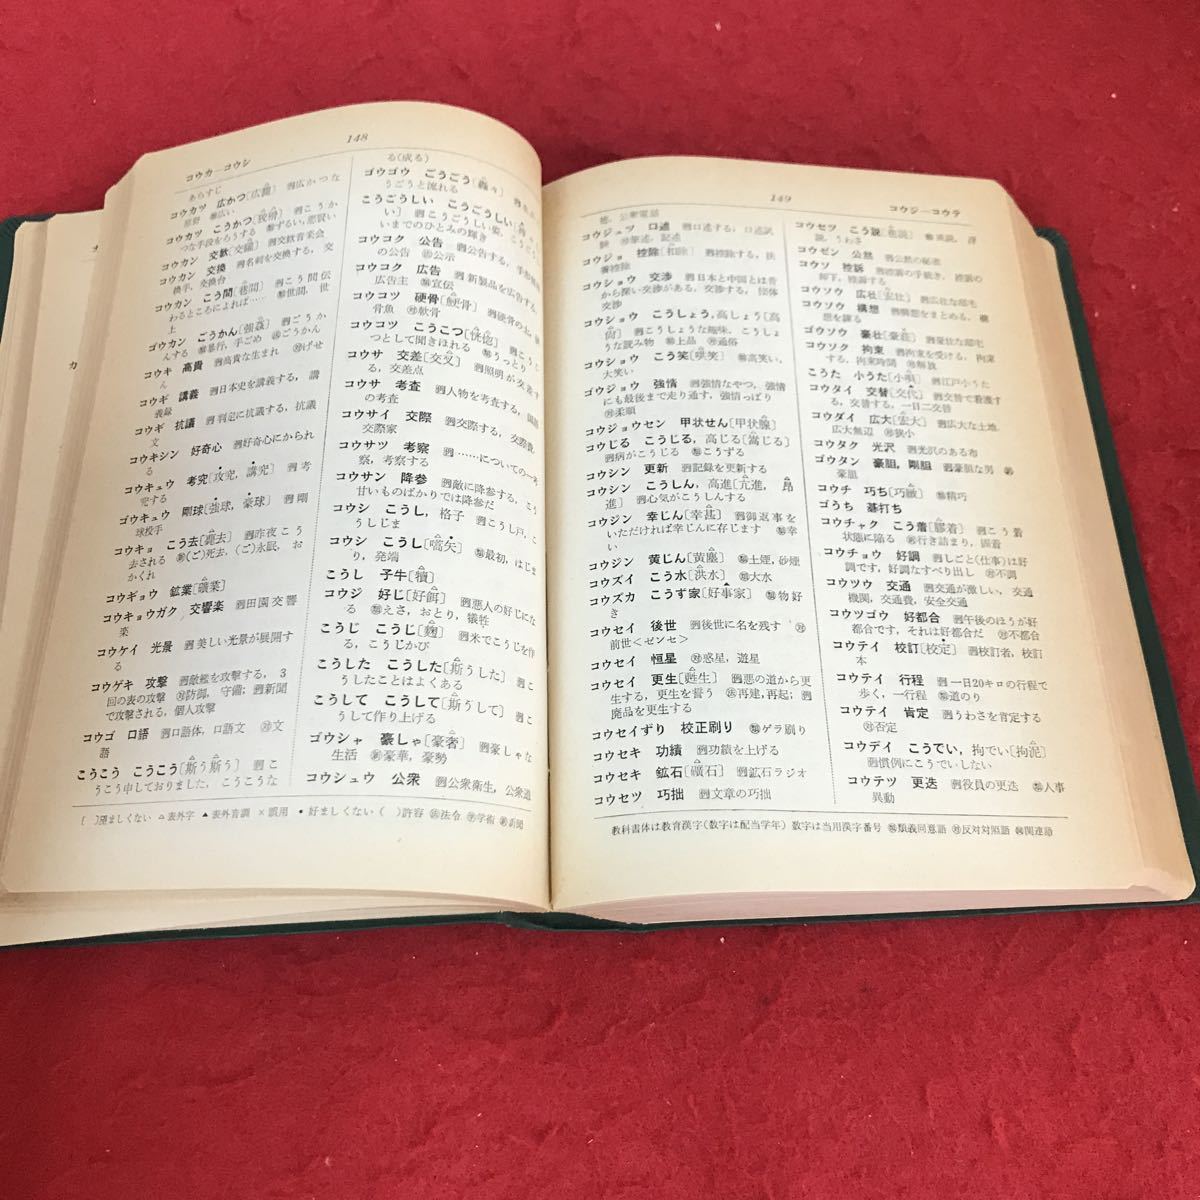 148
コウカ－コウシ
あらすじ
コウカツ 広かつ[広闊] 例広かつな
原野 類広い
コウカツ こうかつ[狡猾] 例こうか
つな手段をろうする 類ずるい, 悪賢い
コウカン 交歓[交驩] 例交歓音楽会
コウカン 交換 例名刺を交換する, 交
換手, 交換台
コウカン こう間[巷間] 例こう間伝
わるところによれば…… 類世間, 世
上
ゴウカン ごうかん[強姦] 例ごうか
んする 類暴行, 手ごめ 法ごうかん
コウキ 高貴 例高貴な生まれ 対げせ
ん
コウギ 講義 例日本史を講義する, 講
義録
コウギ 抗議 例判定に抗議する, 抗議
文
コウキシン 好奇心 例好奇心にかられ
る
コウキュウ 考究[攻究, 講究] 例考
究する
ゴウキュウ 剛球[強球, 豪球] 例剛
球投手
コウキョ こう去[薨去] 例昨夜こう
去される 類(ご)死去, (ご)永眠, お
かくれ
コウギョウ 鉱業[礦業]
コウキョウガク 交響楽 例田園交響
楽
コウケイ 光景 例美しい光景が展開す
る
コウゲキ 攻撃 例敵艦を攻撃する, 3
回の表の攻撃 対防御, 守備; 例新聞
で攻撃される, 個人攻撃
コウゴ 口語 例口語体, 口語文 対文
語
こうこう こうこう[斯う斯う] 例こ
うこう申しておりました, こうこうな
る(成る)
ゴウゴウ ごうごう[轟々]
うごうと流れる
こうごうしい こうごうしい
い] 例こうごうしい姿, こうごうし
いまでのひとみの輝き
コウコク 公告 例公告する,
の公告 法公示
コウコク 広告 例新製品を広告する,
広告主 類宣伝
コウコツ 硬骨[鯁骨] 例硬骨の士, 硬
骨魚 対軟骨
コウコツ こうこつ[恍惚] 例こうこ
つとして聞きほれる 類うっとり
コウサ 交差[交叉] 例照明が交差す
る, 交差点
コウサ 考査 例人物を考査する, 国語
の考査
コウサイ 交際 例交際する, 交際費,
交際家
コウサツ 考察 例……についての一考
察, 考察する
コウサン 降参 例敵に降参する, こう
甘いものばかりでは降参だ
コウシ こうし, 格子 例こうし戸, こ
うしじま
コウシ こうし[嚆矢] 類最初, はじま
り, 発端
こうし 子牛[犢]
コウジ 好じ[好餌] 例悪人の好じにな
る 類えさ, おとり, 犠牲
こうじ こうじ[麹] 例米でこうじを作
る, こうじかび
こうした こうした[斯うした] 例こ
うしたことはよくある
こうして こうして[斯うして] 例こ
うして作り上げる
ゴウシャ 豪しゃ[豪奢] 例豪しゃな
生活 新豪華, 豪勢
コウシュウ 公衆 例公衆衛生, 公衆道
[ ]望ましくない △表外字 ▲表外音訓 ×誤用 •好ましくない ( )許容 法法令 学学術 新新聞
149
コウジ－コウテ
徳, 公衆電話
コウジュツ 口述 例口述する, 口述試
験 対筆述, 記述
コウジョ 控除[扣除] 例控除する, 扶
養控除
コウショウ 交渉 例日本と中国とは昔
から深い交渉がある, 交渉する, 団体
交渉
コウショウ こうしょう, 高しょう[高
尚] 例こうしょうな趣味, こうしょ
うな読み物 類上品 対通俗
コウショウ こう笑[哄笑] 類高笑い,
大笑い
ゴウジョウ 強情 例強情なやつ, 強情
にも最後まで走り通す, 強情っぱり
対柔順
コウジョウセン 甲状せん[甲状腺]
こうじる こうじる, 高じる[嵩じる]
例病がこうじる 類こうずる
コウシン 更新 例記録を更新する
コウシン こうしん, 高進[亢進, 昂
進] 例心気がこうしんする
コウジン 幸じん[幸甚] 例御返事を
いただければ幸じんに存じます 類幸
い
コウジン 黄じん[黄塵] 類土煙, 砂煙
コウズイ こう水[洪水] 類大水
コウズカ こうず家[好事家] 類物好
き
コウセイ 後世 例後世に名を残す 対
前世<ゼンセ>
コウセイ 恒星 対惑星, 遊星
コウセイ 更生[甦生] 例悪の道から更
生する, 更生を誓う 法再建, 再起; 例
廃品を更生する
コウセイずり 校正刷り 類ゲラ刷り
コウセキ 功績 例功績を上げる
コウセキ 鉱石[礦石] 例鉱石ラジオ
コウセツ 巧拙 例文章の巧拙
コウセツ こう説[巷説] 類風説, 浮
説, うわさ
コウゼン 公然 例公然の秘密
コウソ 控訴 例控訴の手続き, 控訴の
却下, 控訴する
コウソウ 広壮[宏壮] 例広壮な邸宅
コウソウ 構想 例構想をまとめる, 構
想を練る
ゴウソウ 豪壮[豪荘] 例豪壮な邸宅
コウソク 拘束 例拘束を受ける, 拘束
する, 拘束時間 対解放
こうた 小うた[小唄] 例江戸小うた
コウタイ 交替[交代] 例交替で看護す
る, 交替する, 一日二交替
コウダイ 広大[宏大] 例広大な土地,
広大無辺 対狭小
コウタク 光沢 例光沢のある布
ゴウタン 豪胆, 剛胆 例豪胆な男 新
豪胆
コウチ 巧ち[巧緻] 類精巧
ごうち 碁打ち
コウチャク こう着[膠着] 例こう着
状態に陥る 新行き詰まり, 固着
コウチョウ 好調 例しごと(仕事)は好
調です, 好調なすべり出し 対不調
コウツウ 交通 例交通が激しい, 交通
機関, 交通費, 安全交通
コウツゴウ 好都合 例午後のほうが好
都合です, それは好都合だ 対不都合
コウテイ 校訂[校定] 例校訂者, 校訂
本
コウテイ 行程 例一日20キロの行程で
歩く, 一行程 類道のり
コウテイ 肯定 例うわさを肯定する
対否定
コウデイ こうでい, 拘でい[拘泥]
例慣例にこうでいしない
コウテツ 更迭 例役員の更迭 類人事
異動
教科書体は教育漢字(数字は配当学年) 数字は当用漢字番号 類類義同意語 対反対対照語 関関連語